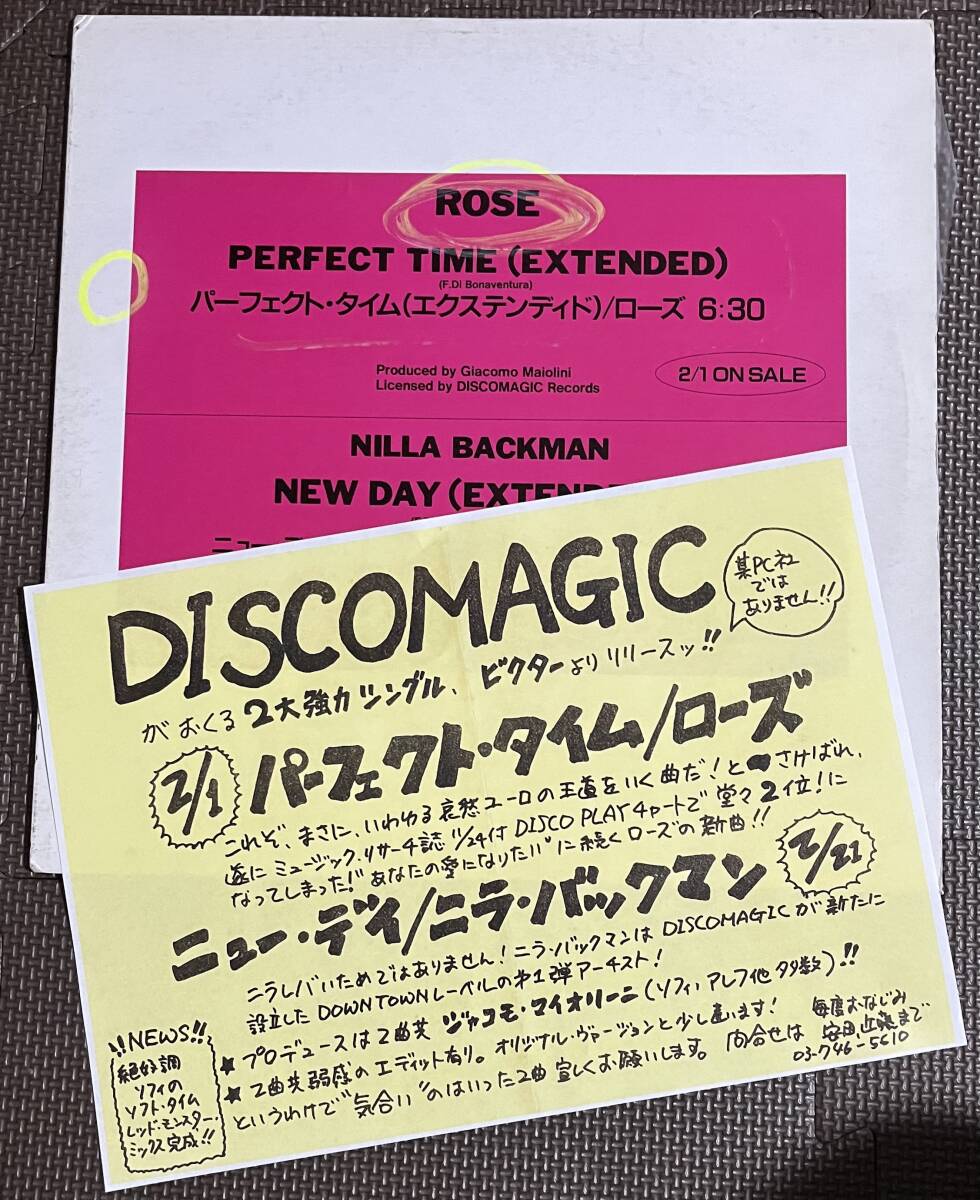 ROSE
PERFECT TIME (EXTENDED)
(F.Di Bonaventura)
パーフェクト・タイム(エクステンディド)/ローズ 6:30
Produced by Giacomo Maiolini
Licensed by DISCOMAGIC Records
2/1 ON SALE
NILLA BACKMAN
NEW DAY (EXTENDE
DISCOMAGIC
某PC社
では
ありません!!
がおくる2大強力シングル、ビクターよりリリースッ!!
2/1 パーフェクト・タイム/ローズ
これぞ、まさに、いわゆる哀愁ユーロの王道をいく曲だ!とさけばれ、
遂にミュージック・リサーチ誌11/24付DISCO PLAYチャートで堂々2位!に
なってしまった!"あなたの愛になりたい"に続くローズの新曲!!
ニュー・デイ/ニラ・バックマン 2/21
ニラレバいためではありません!ニラ・バックマンはDISCOMAGICが新たに
設立したDOWNTOWNレーベルの第1弾アーチスト!
★プロデュースは2曲共 ジャコモ・マイオリーニ(ソフィ,アレフ他多数)!!
★2曲共弱感のエディット有り。オリジナル・ヴァージョンと少し違います!
というわけで"気合い"のはいった2曲宜しくお願いします。
問合せは 毎度おなじみ
安田 まで
03-746-5610
!!NEWS!!
絶好調
ソフィの
ソフト・タイム
レッド・モンスター・
ミックス完成!!